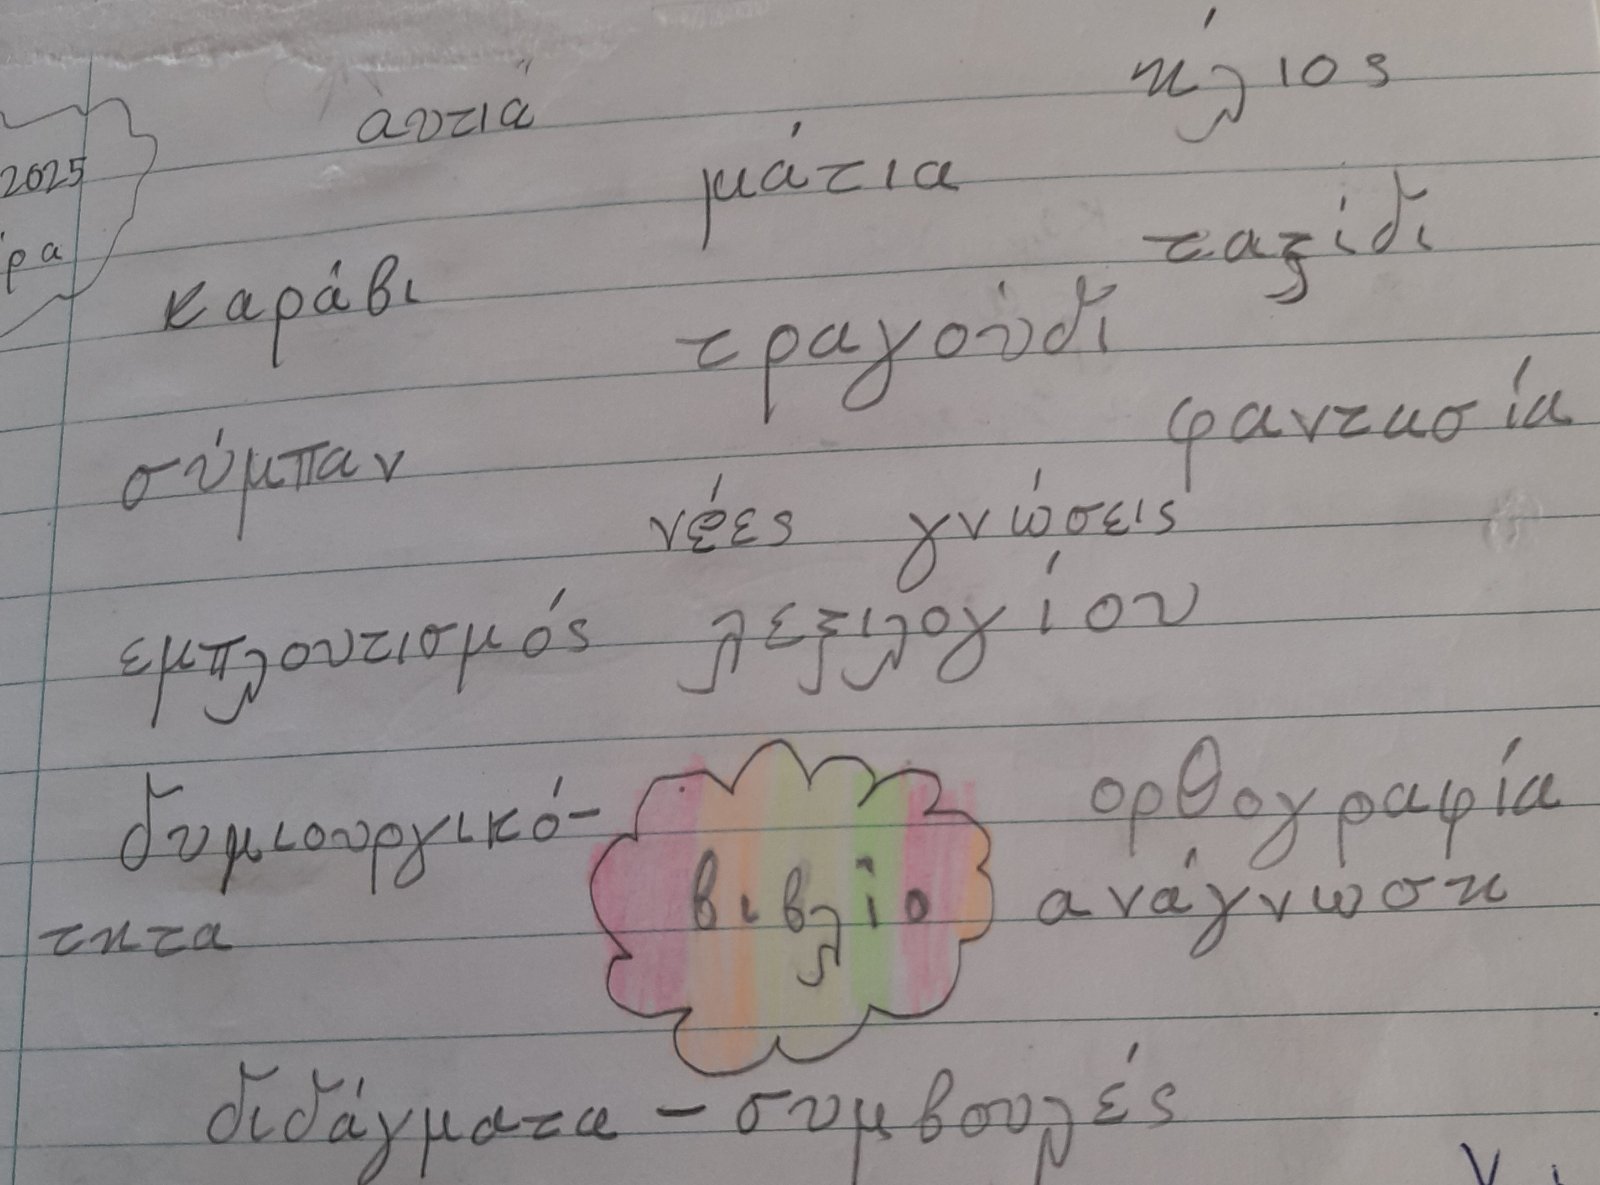 ήλιος
αυτιά
μάτια
2025
ταξίδι
ρα
καράβι
τραγούδι
φαντασία
σύμπαν
νέες γνώσεις
εμπλουτισμός λεξιλογίου
δυμιουργικό-
ορθογραφία
βιβλίο
ανάγνωση
τητα
διδάγματα - συμβουλές